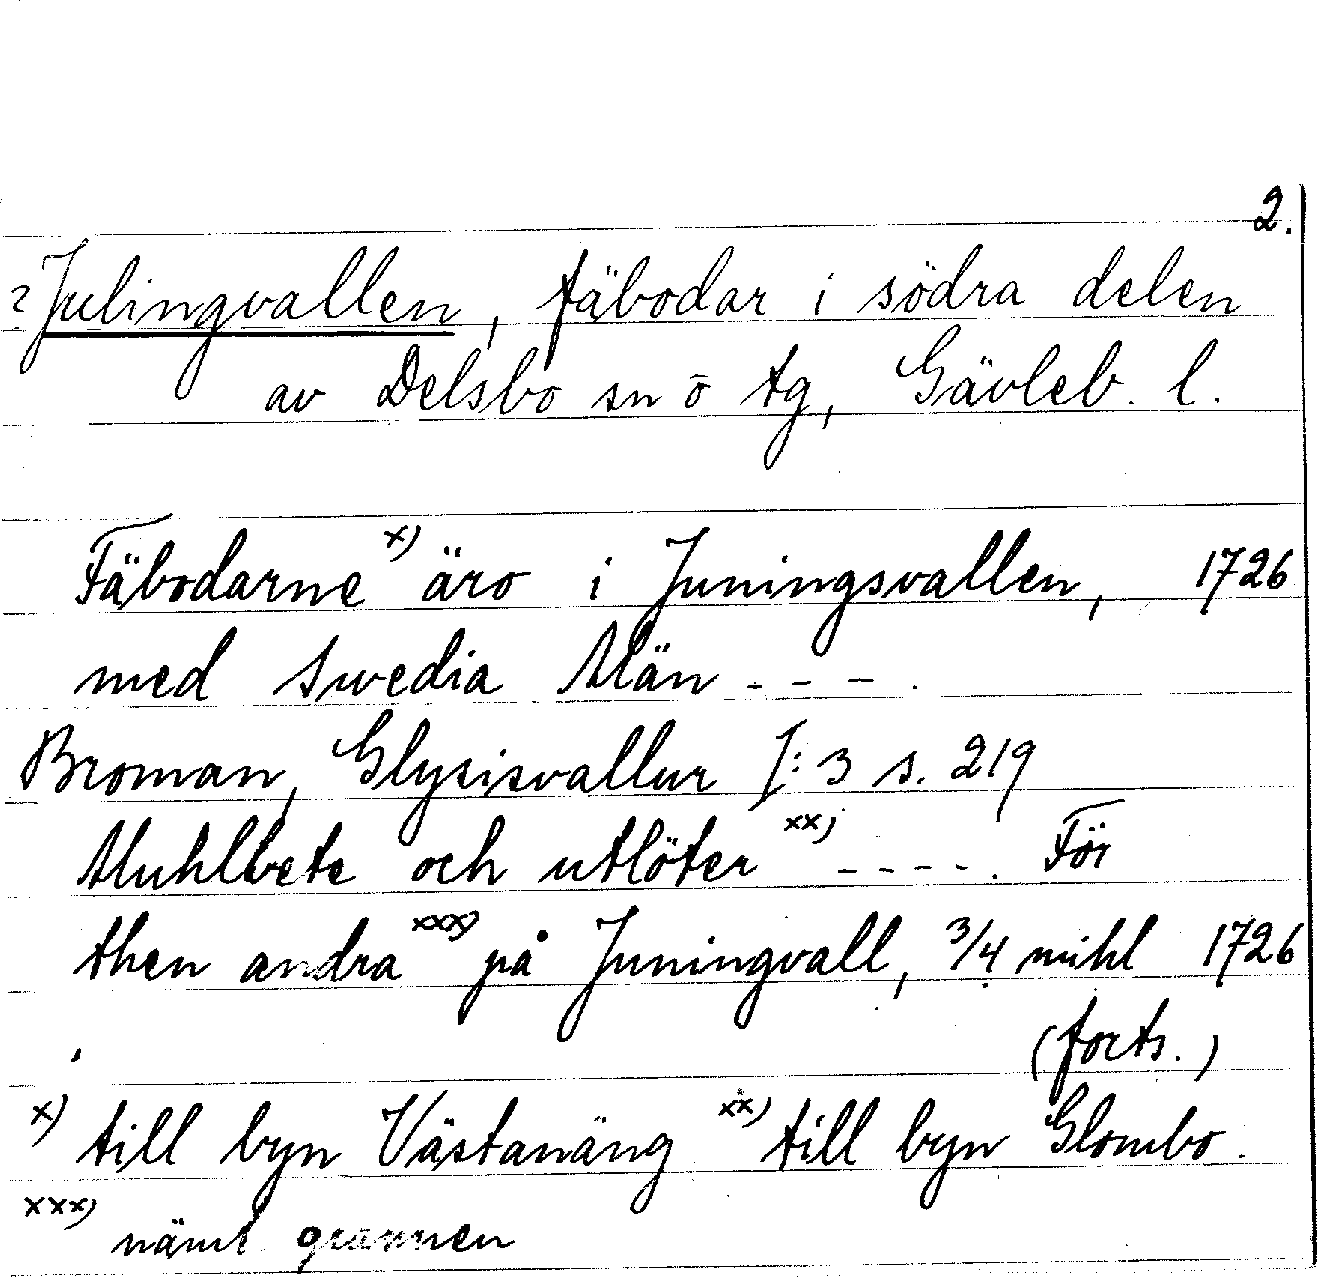 2.
? Julingvallen, fäbodar i södra delen
av Delsbo sn ō tg, Gävleb. l.
Fäbodarne x) äro i Juningsvallen, 1726
med Swedia Män - - - .
Broman, Glysisvallur I: 3 s. 219
Muhlbete och utlöter xx) - - - - . För
then andra xxx) på Juningvall, 3/4 mihl 1726
(forts.)
x) till byn Västanäng xx) till byn Glombo.
xxx) näml. grannen